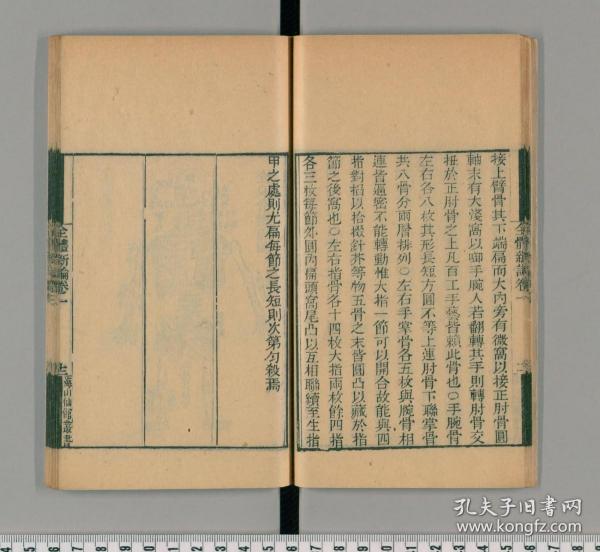 接上臂骨其下端扁而大內旁有微窩以接正肘骨圓
軸末有大淺窩以啣手腕人若翻轉其手則轉肘骨交
扭於正肘骨之上凡百工手藝皆賴此骨也○手腕骨
左右各八枚其形長短方圓不等上連肘骨下聯掌骨
共八骨分兩層排列○左右手掌骨各五枚與腕骨相
連皆逼密不能轉動惟大指一節可以開合故能與四
指對招以拾掇針芥等物五骨之末皆圓凸以藏於指
節之後窩也○左右指骨各十四枚大指兩枚餘四指
各三枚每節外圓內扁頭窩尾凸以互相聯續至生指
甲之處則尤扁每節之長短則次第勻殺焉
全體新論卷一
海山仙館叢書
全體新論卷一
孔夫子旧书网
www.kongfz.com